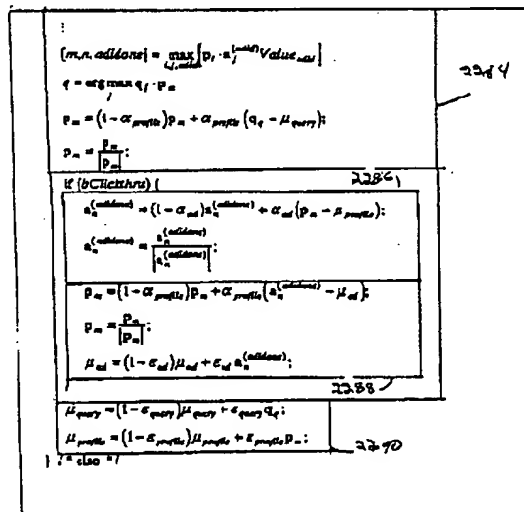 ⋮
[m,n,adidons] = max_{i,j,adid} [p_i · a_j^{(adid)} Value_{adid}]
2284
q = arg max_j q_j · p_m
p_m = (1 - α_{profile})p_m + α_{profile}(q_q - μ_{query});
p_m = p_m / |p_m|;
2286
if (bClickthru) {
a_n^{(adidons)} = (1 - α_{ad})a_n^{(adidons)} + α_{ad}(p_m - μ_{profile});
a_n^{(adidons)} = a_n^{(adidons)} / |a_n^{(adidons)}|;
p_m = (1 - α_{profile})p_m + α_{profile}(a_n^{(adidons)} - μ_{ad});
p_m = p_m / |p_m|;
μ_{ad} = (1 - ε_{ad})μ_{ad} + ε_{ad} a_n^{(adidons)};
}
2288
μ_{query} = (1 - ε_{query})μ_{query} + ε_{query} q_q;
μ_{profile} = (1 - ε_{profile})μ_{profile} + ε_{profile} p_m;
2290
} /* else */